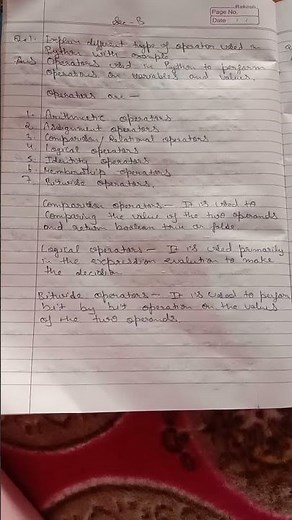 Page No.
Date
Sec - B
Q.1- Explain different type of operators used in
Python with example
Ans Operators used in Python to perform
operations on variables and values
Operators are -
1. Arithmetic operators
2. Assignment operators
3. Comparison/Relational operators
4. Logical operators
5. Identity operators
6. Membership operators
7. Bitwise operators.
Comparison operators - It is used to
comparing the value of the two operands
and return boolean true or false
Logical operators - It is used primarily
in the expression evaluation to make
the decision
Bitwise operators - It is used to perform
bit by bit operation on the values
of the two operands.